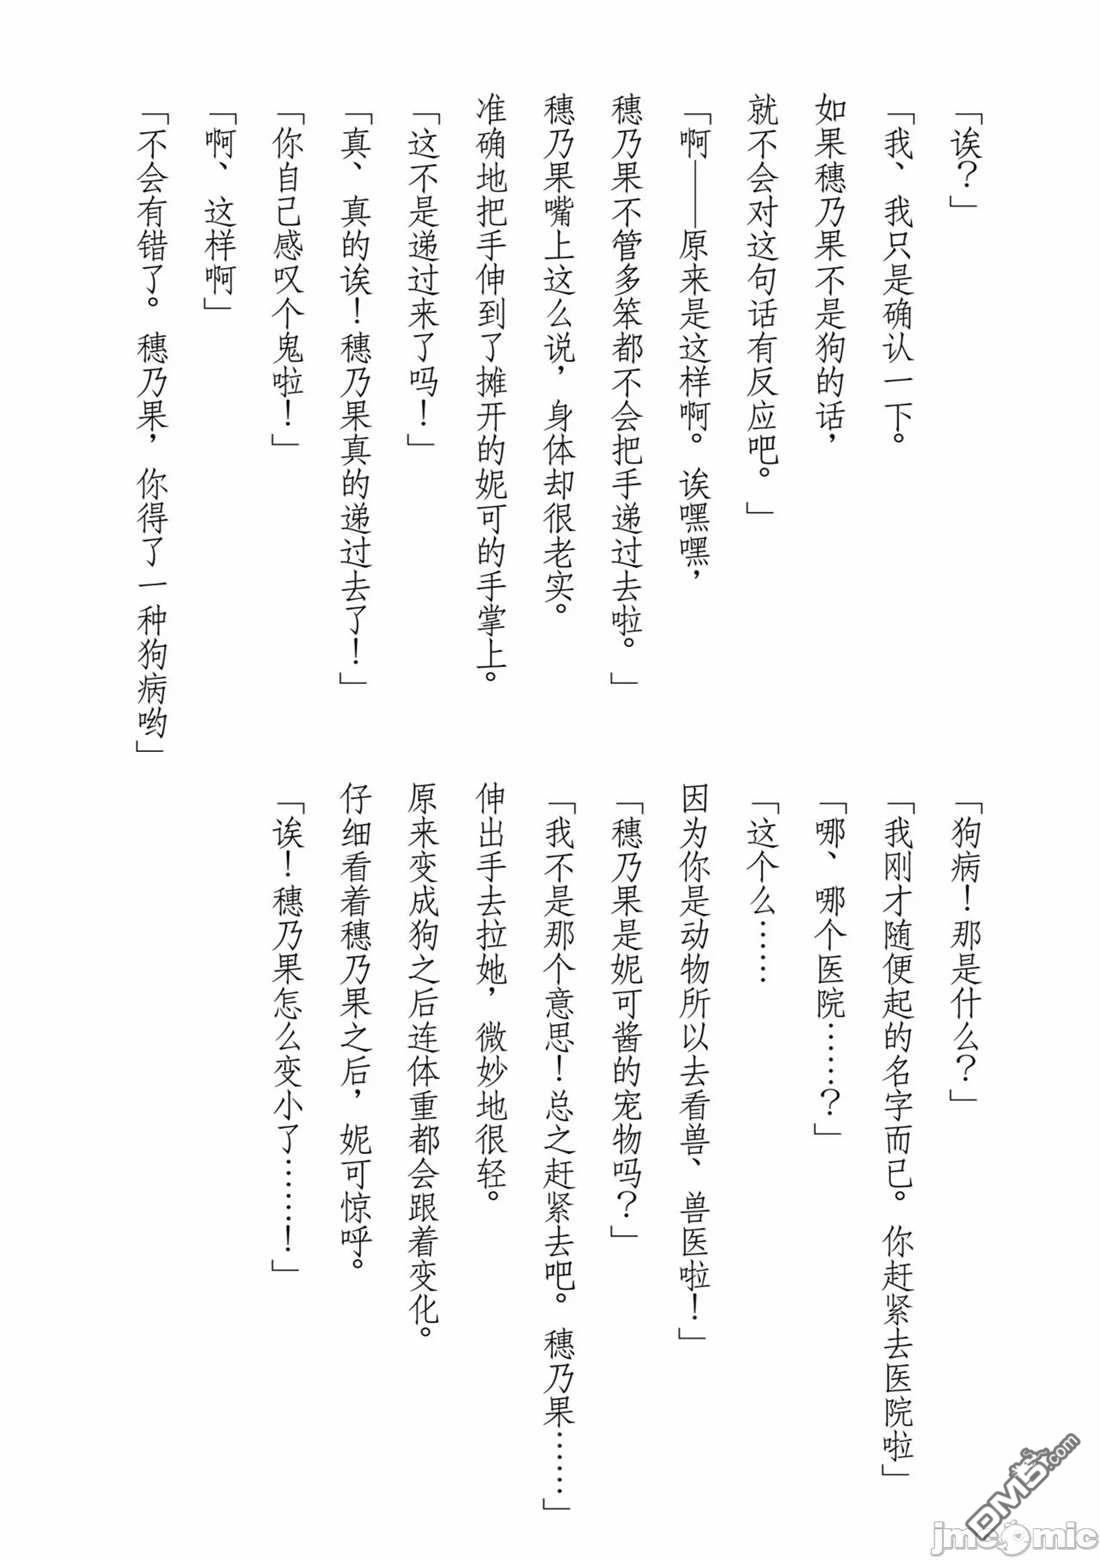 「诶？」
「我、我只是确认一下。
如果穗乃果不是狗的话，
就不会对这句话有反应吧。」
「啊——原来是这样啊。诶嘿嘿，
穗乃果不管多笨都不会把手递过去啦。」
穗乃果嘴上这么说，身体却很老实。
准确地把手伸到了摊开的妮可的手掌上。
「这不是递过来了吗！」
「真、真的诶！穗乃果真的递过去了！」
「你自己感叹个鬼啦！」
「啊、这样啊」
「不会有错了。穗乃果，你得了一种狗病哟」
「狗病！那是什么？」
「我刚才随便起的名字而已。你赶紧去医院啦」
「哪、哪个医院……？」
「这个么……
因为你是动物所以去看兽、兽医啦！」
「穗乃果是妮可酱的宠物吗？」
「我不是那个意思！总之赶紧去吧。穗乃果……」
伸出手去拉她，微妙地很轻。
原来变成狗之后连体重都会跟着变化。
仔细看着穗乃果之后，妮可惊呼。
「诶！穗乃果怎么变小了……！」
DM5.com
jmcomic